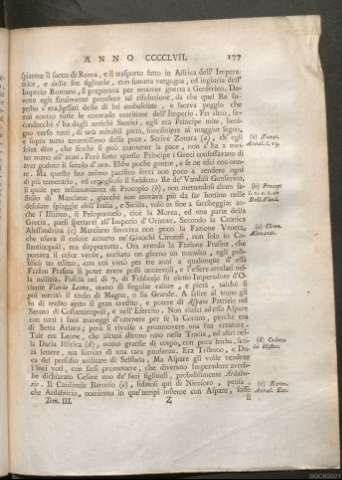 ANNO CCCCLVII. 177
spiacere il sacco di Roma, e il trasporto fatto in Affrica dell' Impera-
trice, e delle sue figliuole, con somma vergogna, ed ingiuria dell'
Imperio Romano, si preparava per muover guerra a Genserico. Do-
vette egli finalmente prendere tal risoluzione, da che quel Re su-
perbo s' era beffato delle di lui ambasciate, e faceva peggio che
mai contro tutte le contrade marittime dell' Imperio. Per altro, se-
condochè s' ha dagli antichi Storici, egli era Principe mite, beni-
gno verso tutti, di una mirabil pietà, limosiniere al maggior segno,
e sopra tutto amantissimo della pace. Scrive Zonara (a), ch' egli
solea dire, che finchè si può mantener la pace, non s' ha a met-
ter mano all' armi. Però sotto questo Principe i Greci confessavano di
aver goduto il secolo d' oro. Ebbe poche guerre, e se ne uscì con ono-
re. Ma questo suo animo pacifico servì non poco a rendere ogni
dì più temerario, ed orgoglioso il suddetto Re de' Vandali Genserico,
il quale per testimonianza di Procopio (b), non mettendosi alcun fa-
stidio di Marciano, giacchè non trovava più da far bottino nelle
desolate spiagge dell' Italia, e Sicilia, volò in fine a saccheggiar an-
che l' Illirico, il Peloponneso, cioè la Morea, ed una parte della
Grecia, paesi spettanti all' Imperio d' Oriente. Secondo la Cronica
Alessandrina (c) Marciano favoriva non poco la Fazione Veneta,
che usava il colore azzurro ne' Giuochi Circensi, non solo in Co-
stantinopoli, ma dappertutto. Ora avendo la Fazione Prasina, che
portava il color verde, eccitato un giorno un tumulto, egli pub-
blicò un editto, con cui vietò per tre anni a qualunque d' essa
Fazion Prasina il poter avere posti onorevoli, e l' essere arrolati nel-
la milizia. Fu eletto Imperadore d' O-
riente Flavio Leone, uomo di singolar valore, e pietà, talchè si
poi meritò il titolo di Magno, o sia Grande. A salire al trono gli
fu di molto ajuto il gran credito, e potere di Aspare Patrizio nel
Senato di Costantinopoli, e nell' Esercito. Non riuscì ad esso Aspare
con tutti i suoi maneggi d' ottenere per se la Corona, perchè era
di Setta Ariana; però si rivolse a promuovere una sua creatura.
Tale era Leone, che alcuni dicono nato nella Tracia, ed altri nel-
la Dacia Illirica (d), uomo gracile di corpo, con poca barba, sen-
za lettere, ma fornito di una rara prudenza. Era Tribuno, e Du-
ca del presidio militare di Ma Aspare gli volle vendere
i suoi voti, con farsi promettere, che divenuto Imperadore avreb-
be dichiarato Cesare uno de' suoi figliuoli, probabilmente Ardabu-
rio. Il Cardinale Baronio (e), fidatosi qui di Niceforo, pensa,
che Ardaburio, nominato in que' tempi insieme con Aspare, fosse
Tom. III. Z il
(a) Zonar.
Annal.
(b) Procop.
Bell. Vand.
(c) Chron.
Alexandr.
(d) Cedren.
in Histor.
(e) Baron.
Annal. Ecc.